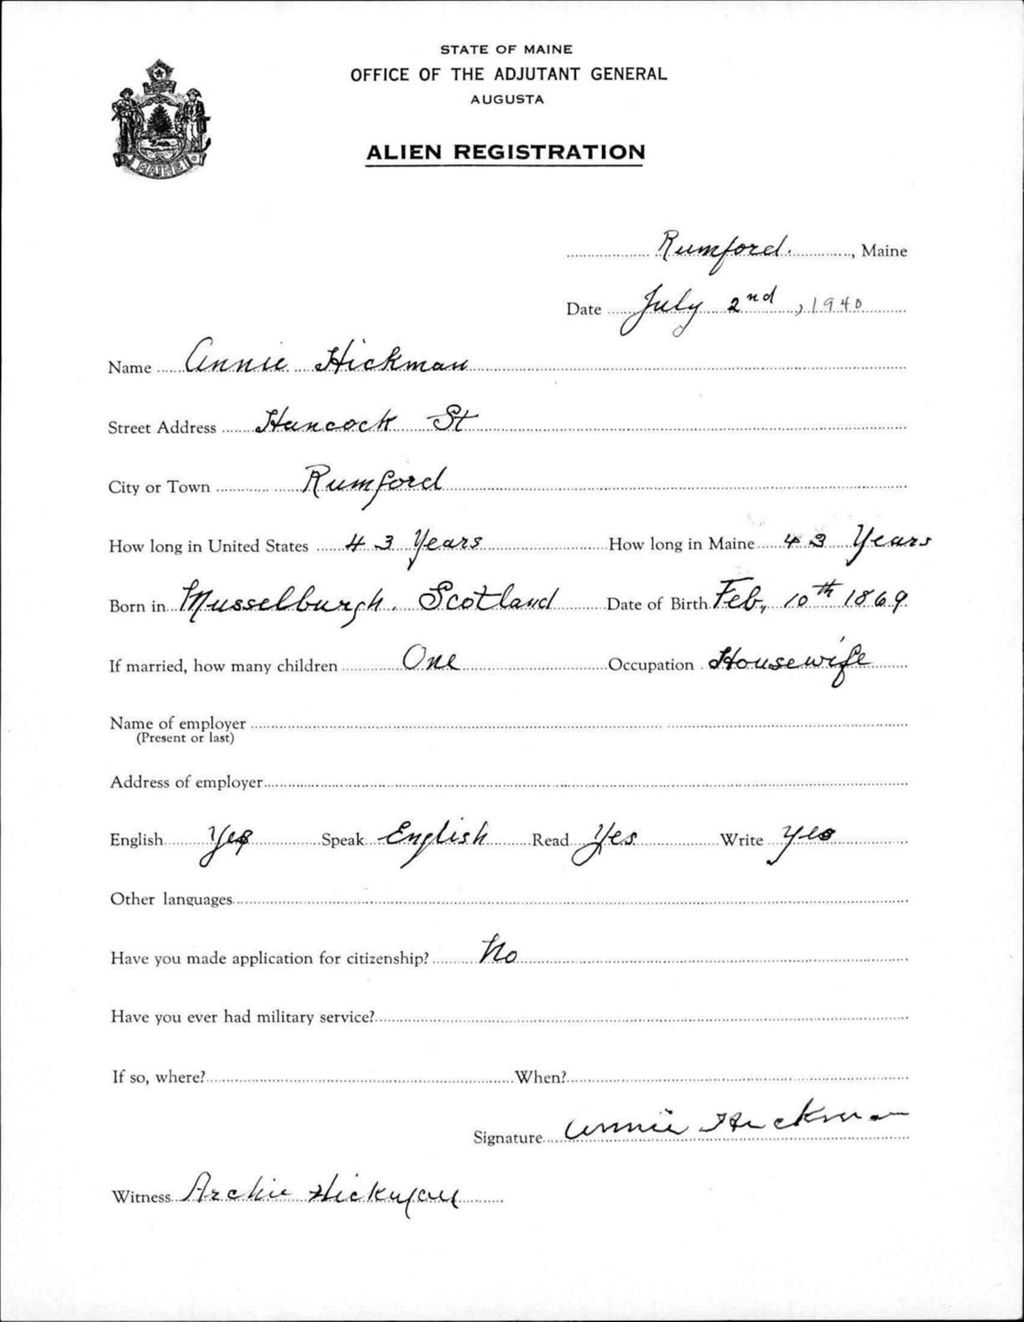 STATE OF MAINE
OFFICE OF THE ADJUTANT GENERAL
AUGUSTA
ALIEN REGISTRATION
MAINE
Rumford. , Maine
Date July 2nd, 1940
Name Annie Hickman
Street Address Hancock St
City or Town Rumford
How long in United States 43 Years How long in Maine 43 Years
Born in Musselburgh. Scotland Date of Birth Feb, 10th 1869
If married, how many children One Occupation Housewife
Name of employer
(Present or last)
Address of employer
English Yes Speak English Read Yes Write yes
Other languages
Have you made application for citizenship? No
Have you ever had military service?
If so, where? When?
Signature Annie Hickman
Witness Archie Hickman